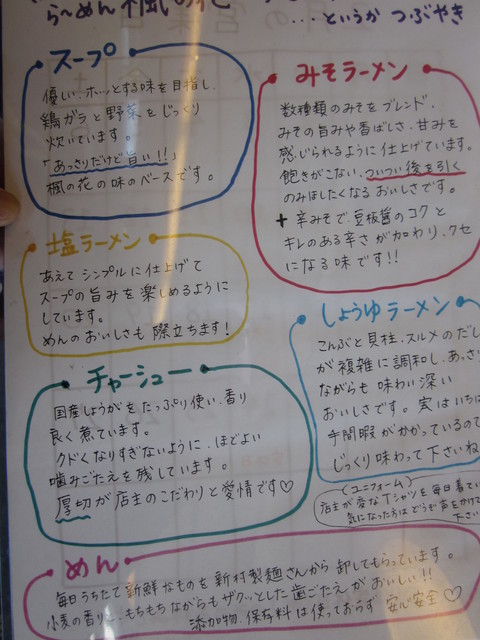 らーめん 楓の花
...というか つぶやき
スープ
優しい、ホッとする味を目指し、
鶏ガラと野菜をじっくり
炊いています。
「あっさりだけど旨い!!」
楓の花の味のベースです。
みそラーメン
数種類のみそをブレンド、
みその旨みや香ばしさ、甘みを
感じられるように仕上げています。
飽きがこない、ついつい後を引く
のみほしたくなるおいしさです。
+ 辛みそで豆板醤のコクと
キレのある辛さが加わり、クセ
になる味です!!
塩ラーメン
あえてシンプルに仕上げて
スープの旨みを楽しめるように
しています。
めんのおいしさも際立ちます!
しょうゆラーメン
こんぶと貝柱、スルメのだし
が複雑に調和し、あっさ
ながらも味わい深い
おいしさです。実はいちば
手間暇がかかっているので
じっくり味わって下さいね
チャーシュー
国産しょうがをたっぷり使い、香り
良く煮ています。
クドくなりすぎないように、ほどよい
噛みごたえを残しています。
厚切が店主のこだわりと愛情です♡
(ユニフォーム)
店主が変なTシャツを毎日着てい
気になった方はどうぞ声をかけて
下さい
めん
毎日うちたて新鮮なものを新村製麺さんから卸してもらっています。
小麦の香りと、もちもちながらもザクッとした歯ごたえがおいしい!!
添加物、保存料は使っておらず安心安全♡